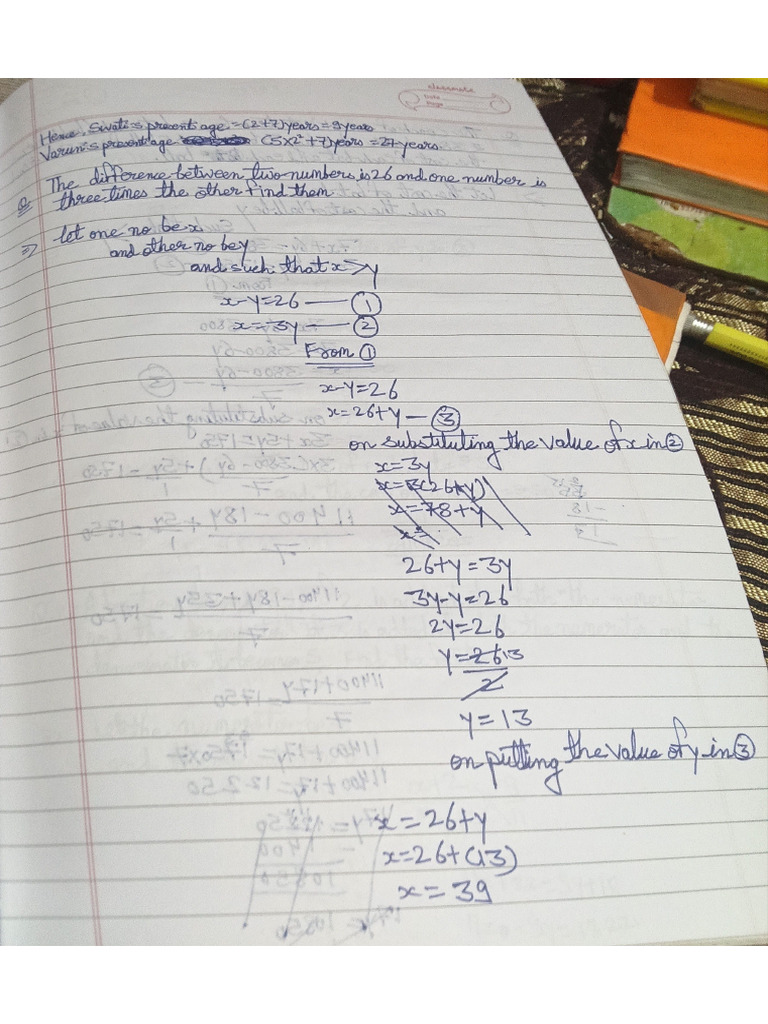 classmate
Date
Page
Hence, Swati's present age = (2+7)years = 9years
Varun's present age (5x2²+7)years = 27 years
Q The difference between two numbers is 26 and one number is
three times the other find them
⇒ let one no be x
and other no be y
and such that x>y
x-y=26 — ①
x=3y — ②
From ①
x-y=26
x=26+y — ③
on substituting the value of x in ②
x=3y
x=3(26+y)
x=78+y
x=
26+y=3y
3y-y=26
2y=26
y=26 13
2
y=13
on putting the value of y in ③
x=26+y
x=26+(13)
x=39